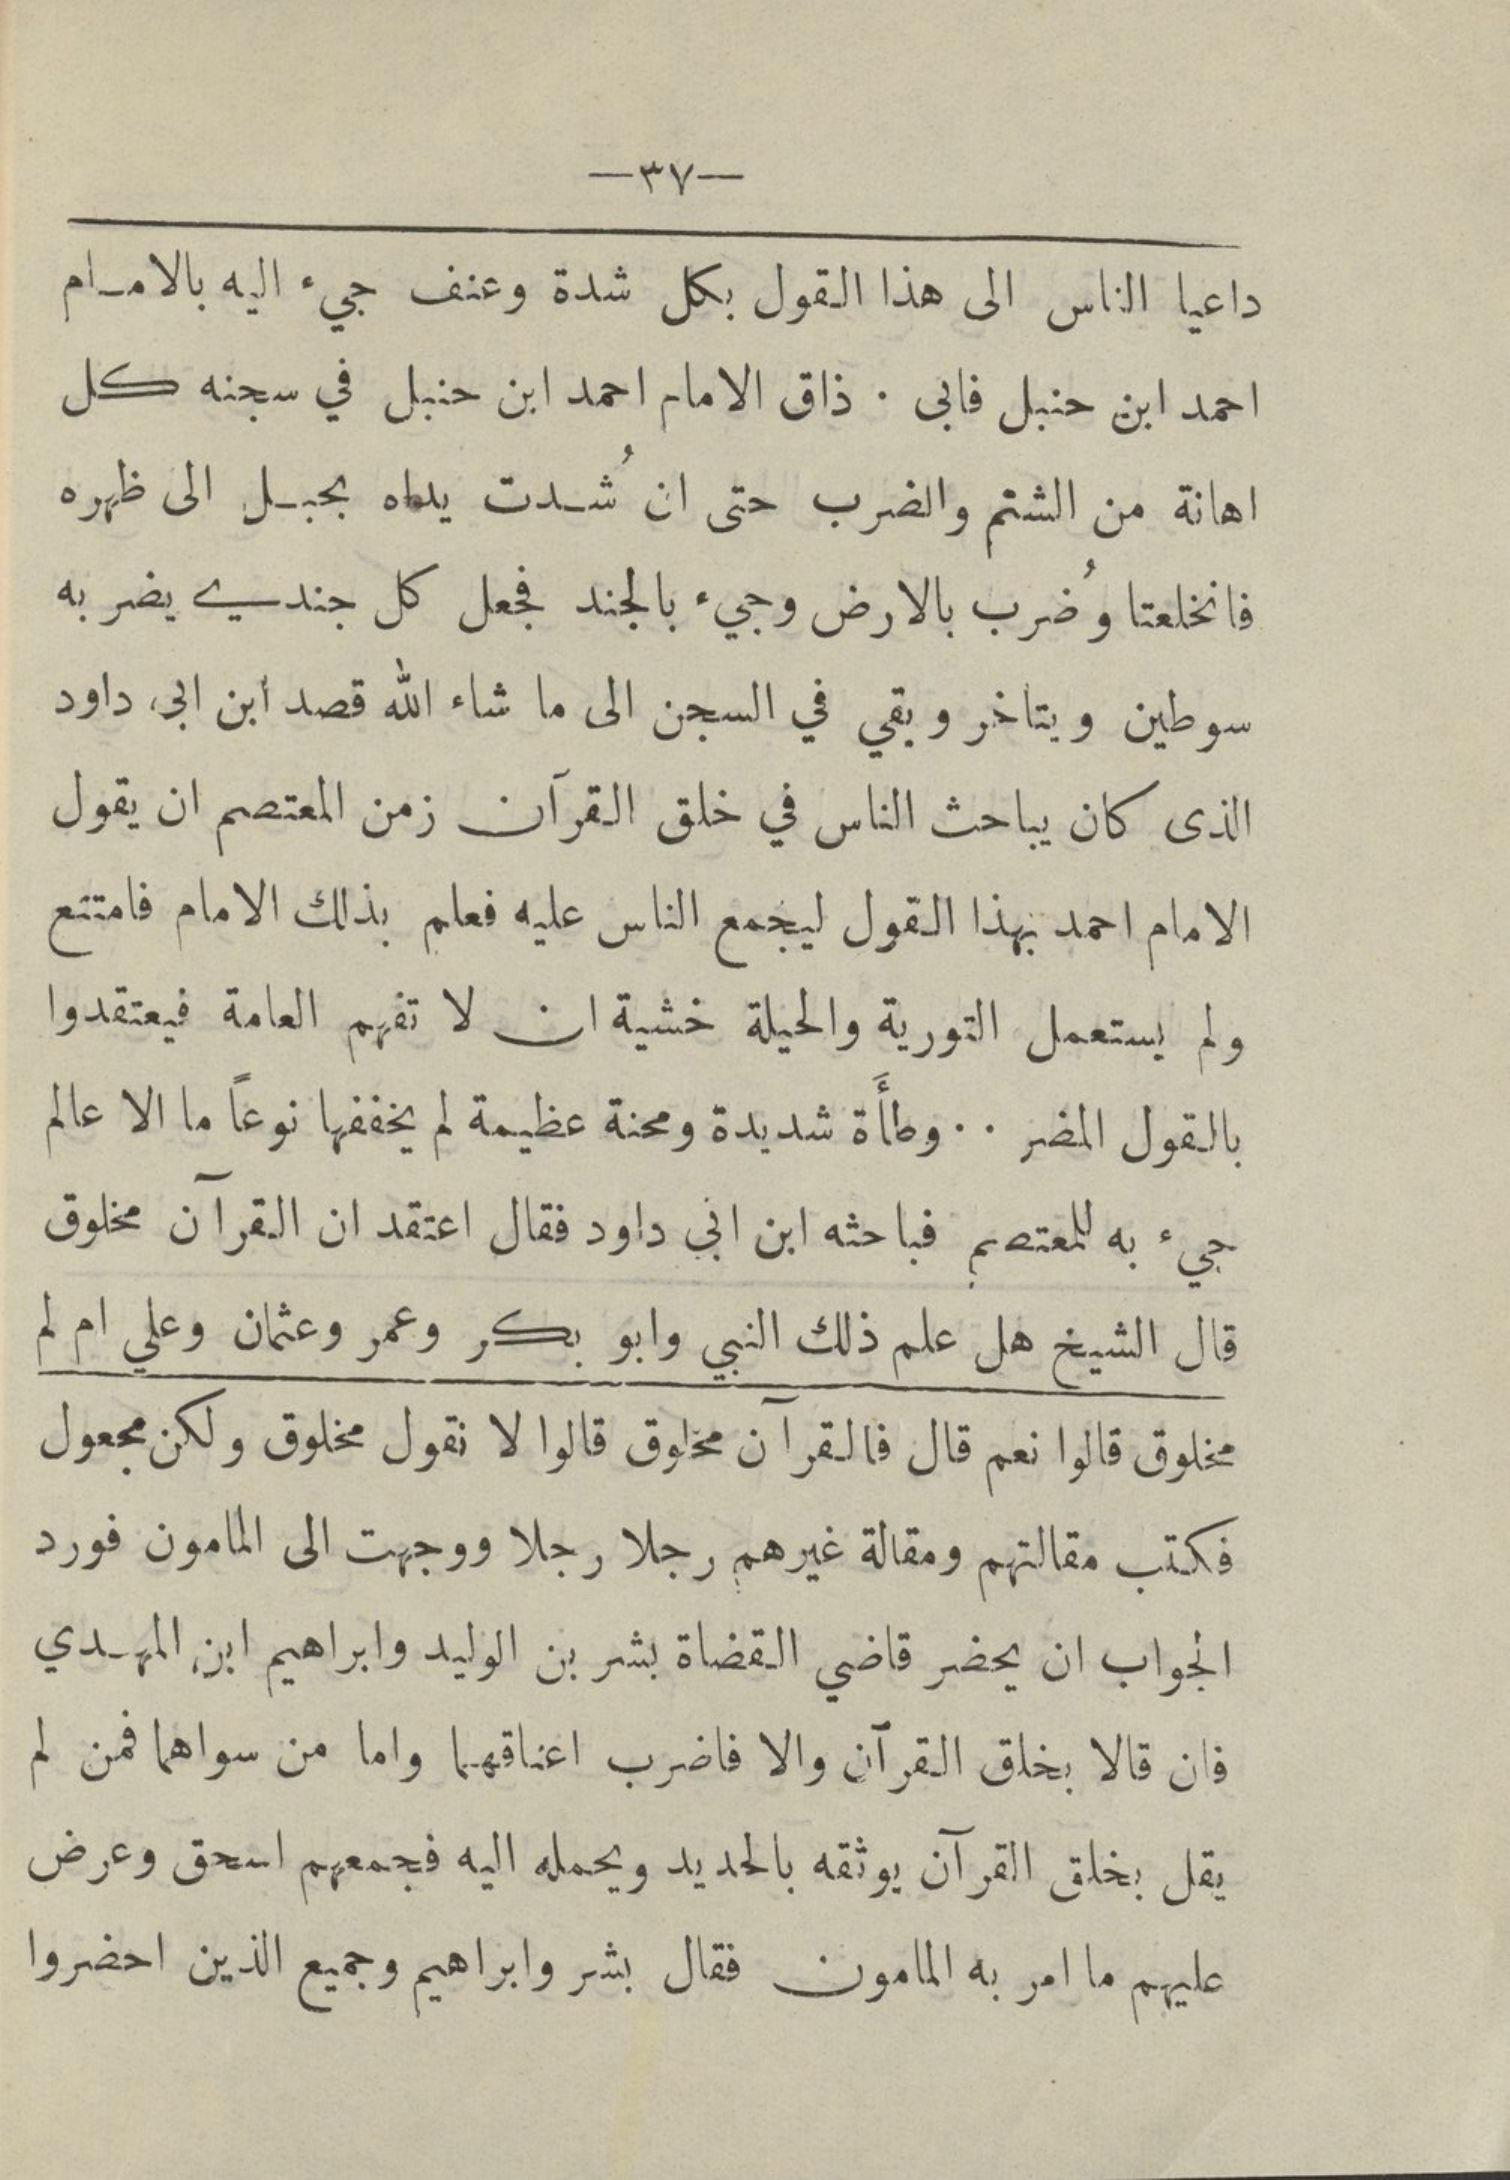 —٣٧—
داعيا الناس الى هذا القول بكل شدة وعنف جيء اليه بالامـام
احمد ابن حنبل فابى ٠ ذاق الامام احمد ابن حنبل في سجنه كل
اهانة من الشتم والضرب حتى ان شُـدت يداه بحبـل الى ظهره
فانخلعتا وضُرب بالارض وجيء بالجند فجعل كل جندي يضربه
سوطين ويتاخر وبقي في السجن الى ما شاء الله قصد أبن ابي داود
الذى كان يباحث الناس في خلق القرآن زمن المعتصم ان يقول
الامام احمد بهذا القول ليجمع الناس عليه فعلم بذلك الامام فامتنع
ولم يستعمل التورية والحيلة خشية ان لا تفهم العامة فيعتقدوا
بالقول المضر ٠٠ وطأَة شديدة ومحنة عظيمة لم يخففها نوعاً ما الا عالم
جيء به للمعتصم فباحثه ابن ابي داود فقال اعتقد ان القرآن مخلوق
قال الشيخ هل علم ذلك النبي وابو بكر وعمر وعثمان وعلي ام لم
مخلوق قالوا نعم قال فالقرآن مخلوق قالوا لا نقول مخلوق ولكن مجعول
فكتب مقالتهم ومقالة غيرهم رجلا رجلا ووجهت الى المامون فورد
الجواب ان يحضر قاضي القضاة بشر بن الوليد وابراهيم ابن المهـدي
فان قالا بخلق القرآن والا فاضرب اعناقهما واما من سواهما فمن لم
يقل بخلق القرآن يوثقه بالحديد ويحمله اليه فجمعهم اسحق وعرض
عليهم ما امر به المامون فقال بشر وابراهيم وجميع الذين احضروا